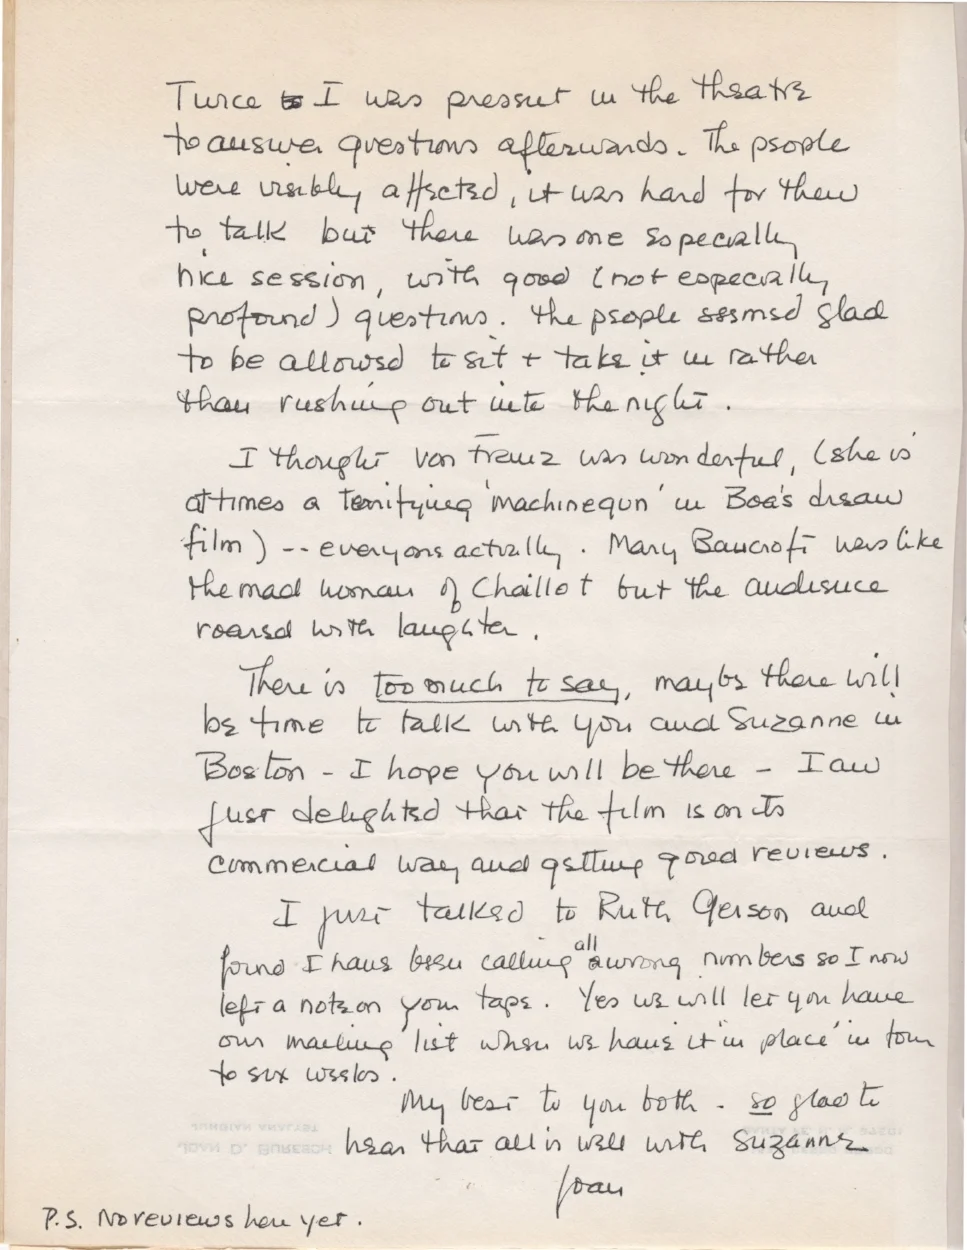 Twice I was present in the theatre
to answer questions afterwards. The people
were visibly affected, it was hard for them
to talk but there was one especially
nice session, with good (not especially
profound) questions. The people seemed glad
to be allowed to sit + take it in rather
than rushing out into the night.
I thought von Franz was wonderful, (she is
at times a terrifying 'machinegun' in Boa's dream
film) -- everyone actually. Mary Bancroft was like
the mad woman of Chaillot but the audience
roared with laughter.
There is too much to say, maybe there will
be time to talk with you and Suzanne in
Boston - I hope you will be there - I am
just delighted that the film is on its
commercial way and getting good reviews.
I just talked to Ruth Gerson and
found I have been calling all wrong numbers so I now
left a note on your tape. Yes we will let you have
our mailing list when we have it "in place" in four
to six weeks.
My best to you both - so glad to
hear that all is well with Suzanne
Joan
JUNGIAN ANALYST
JOAN D. BURESCH
P.S. No reviews here yet.